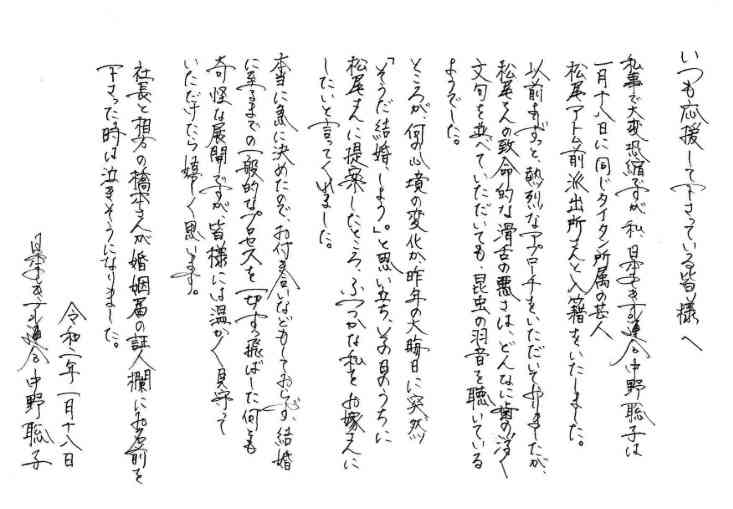 いつも応援して下さっている皆様へ
私事で大変恐縮ですが、私、日本エレキテル連合 中野聡子は
一月十八日に同じタイタン所属の芸人
松尾アトム前派出所さんと入籍をいたしました。
以前よりずっと、熱烈なアプローチをいただいておりましたが、
松尾さんの致命的な滑舌の悪さは、どんなに歯の浮く
文句を並べていただいても、昆虫の羽音を聴いている
ようでした。
ところが、何の心境の変化か、昨年の大晦日に突然
「そうだ結婚、しよう。」と思い立ち、その日のうちに
松尾さんに提案したところ、ふつつかな私をお嫁さんに
したいと言ってくれました。
本当に急に決めたので、お付き合いなどもしておらず、結婚
に至るまでの一般的なプロセスを一切すっ飛ばした何とも
奇怪な展開ですが、皆様には温かく見守って
いただけたら嬉しく思います。
社長と相方の橋本さんが婚姻届の証人欄にお名前を
下さった時は泣きそうになりました。
令和二年 一月十八日
日本エレキテル連合 中野聡子